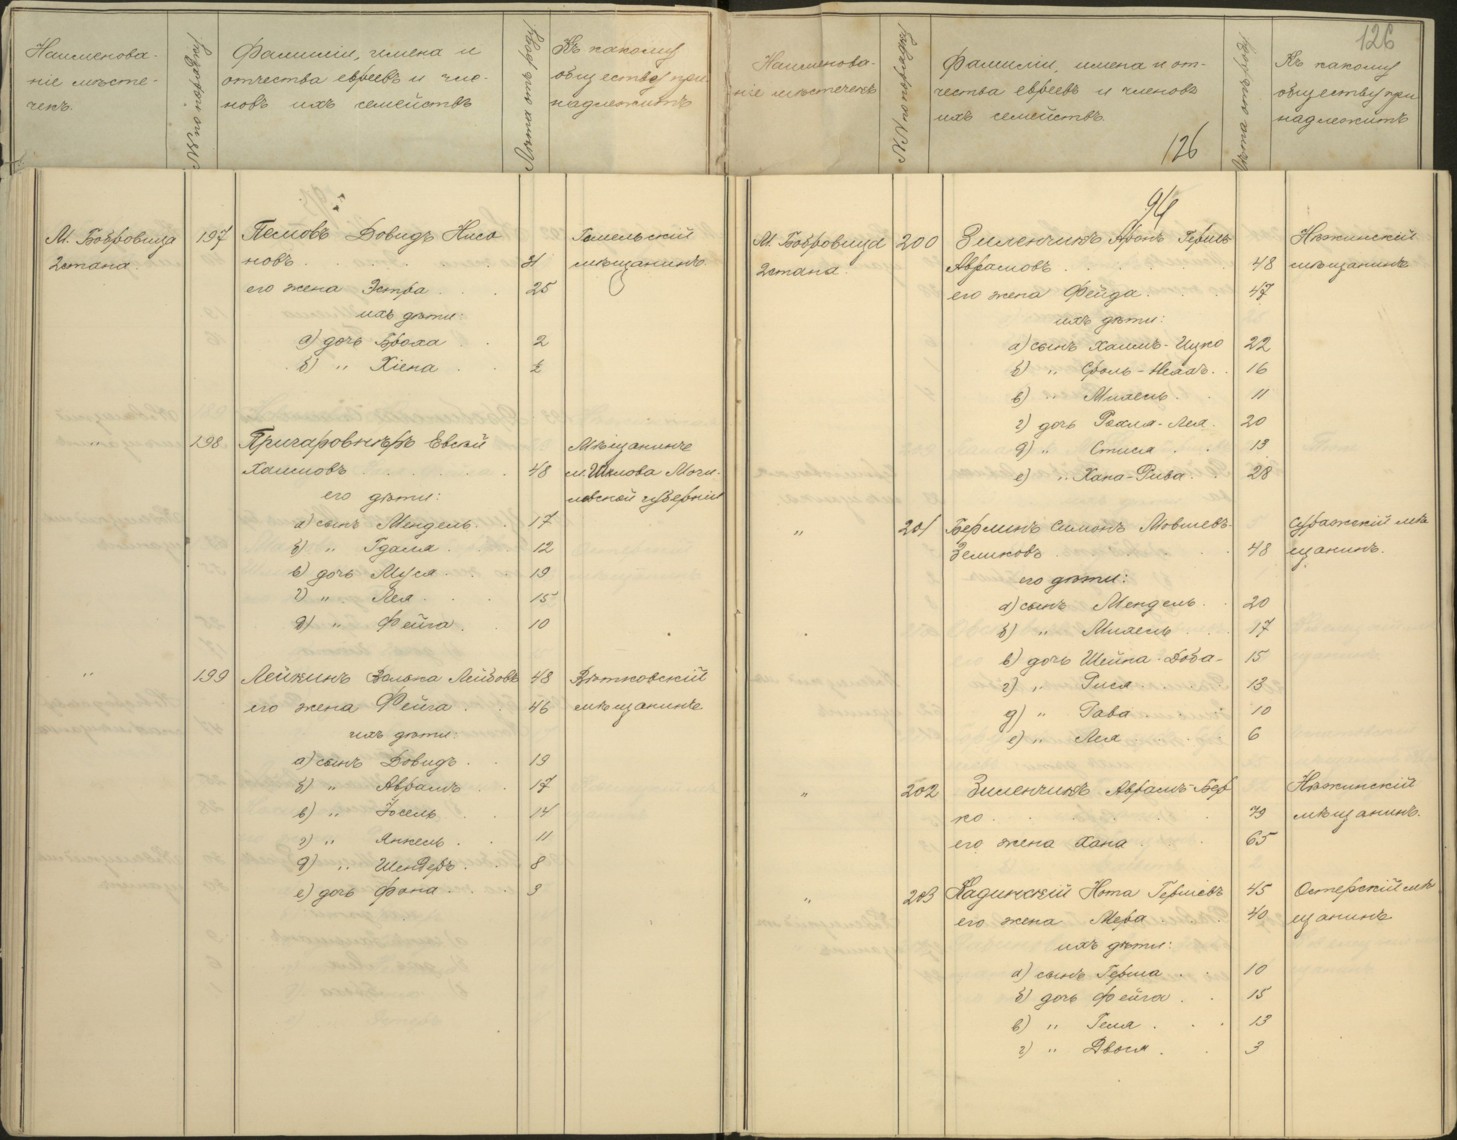 Наименова-
ніе мѣсте-
чекъ.
№№ по порядку
Фамиліи, имена и
отчества евреевъ и чле-
новъ ихъ семействъ
Лѣта отъ роду
Къ какому
обществу при
надлежитъ
М. Бобровица
2 стана.
197
Песмовъ Довидъ Нисо
новъ
31
Гомельскій
мѣщанинъ
его жена Эстра 25
ихъ дѣти:
а) дочь Броха 2
б) " Хіена ½
" 198
Евсей
Хаимовъ 48
Мѣщанинъ
м. Шклова Моги-
левской губерніи
его дѣти:
а) сынъ Мендель 17
б) " Гдаля 12
в) дочь Муся 19
г) " Лея 15
д) " Фейга 10
" 199 Лейкинъ Залька Лейбовъ 48 Вѣтковскій
его жена Фейга 46 мѣщанинъ
ихъ дѣти:
а) сынъ Довидъ 19
б) " Аврамъ 17
в) " Іосель 14
г) " Янкель 11
д) " Шендеръ 8
е) дочь Фона 3
126
Наименова-
ніе мѣстечекъ
№№ по порядку
Фамиліи, имена и от-
чества евреевъ и членовъ
ихъ семействъ.
126
Лѣта отъ роду
Къ какому
обществу при
надлежитъ
94
М. Бобровица
2 стана.
200
Зиленчикъ Аронъ Гершъ
Абрамовъ 48
Нѣжинскій
мѣщанинъ
его жена Фейда 47
ихъ дѣти:
а) сынъ Хаимъ-Ицко 22
б) " Сроль- 16
в) " Михель 11
г) дочь Рохля-Лея 20
д) " Стися 13
е) " Хана-Рива 28
" 201 Берлинъ Симонъ Мовшевъ-
Зеликовъ 48
Суражскій мѣ
щанинъ.
его дѣти:
а) сынъ Мендель 20
б) " Михель 17
в) дочь Шейна-Доба- 15
г) " Рися 13
д) " Рава 10
е) " Лея 6
" 202 Зиленчикъ Аврамъ-Бер
ко 79
Нѣжинскій
мѣщанинъ.
его жена Хана 65
" 203 Радинскій Нота Гершевъ 45 Остерскій мѣ
его жена Мера 40 щанинъ
ихъ дѣти:
а) сынъ Герша 10
б) дочь Фейга 15
в) " Геля 13
г) " Двося 3